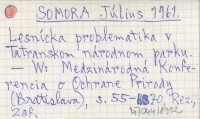 SOMORA Július 1961.
Lesnícka problematika v
Tatranskom národnom parku.
W: Medzinárodná Konfe-
rencia o Ochrane Prírody
(Bratislava), s. 55-70, Rez,
zaf.